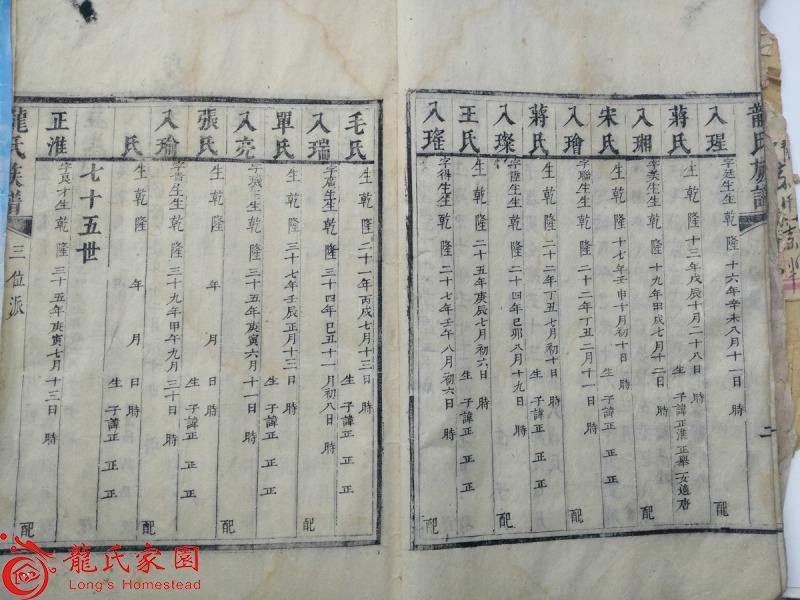 龍氏族譜
二
入瑆
字廷生生乾隆十六年辛未八月十一日 時 配
蔣氏
生乾隆十三年戊辰十月二十八日 時 生子諱正淮正舉一女適唐
入琱
字美生生乾隆十七年壬申十月初十日 時 配
宋氏
生乾隆十九年甲戌七月十二日 時 生子諱正 正 正
入璯
字聯生生乾隆二十二年丁丑二月十一日 時 配
蔣氏
生乾隆二十二年丁丑七月初十日 時 生子諱正 正 正
入璨
字陞生生乾隆二十四年己卯八月十九日 時 配
王氏
生乾隆二十五年庚辰七月初六日 時 生子諱正 正 正
入璀
字得生生乾隆二十七年壬午八月初六日 時 配
毛氏
生乾隆二十一年丙戌七月十三日 時 生子諱正 正 正
入瑞
字廣生生乾隆三十四年己丑十一月初八日 時 配
單氏
生乾隆三十七年壬辰正月十三日 時 生子諱正 正 正
入亮
字城三生乾隆三十五年庚寅六月十一日 時 配
張氏
生乾隆 年 月 日 時 生子諱正 正 正
入瑜
字書生生乾隆三十九年甲午九月三十日 時 配
氏
生乾隆 年 月 日 時 生子諱正 正 正
七十五世
正淮
字良才生乾隆三十五年庚寅七月十三日 時 配
龍氏族譜
三位派
龍氏家園
Long's Homestead